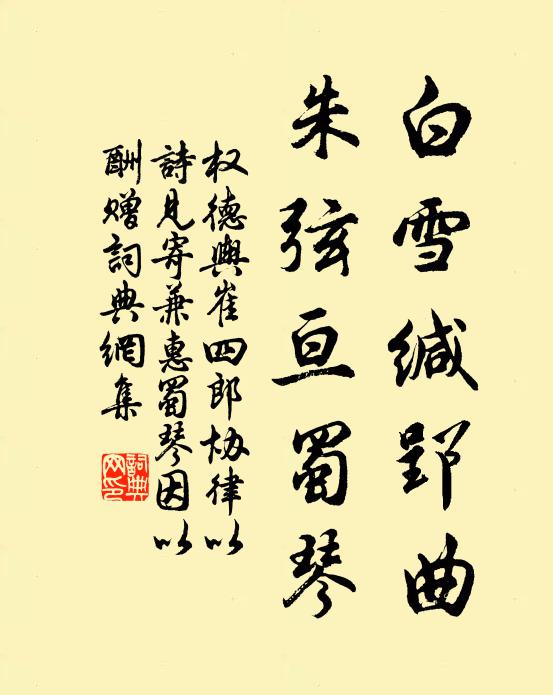 白雪缄郢曲
朱弦亘蜀琴
权德舆崔四郎协律以
詩見寄兼惠蜀琴因以
酬赠詞典網集
詞典网印